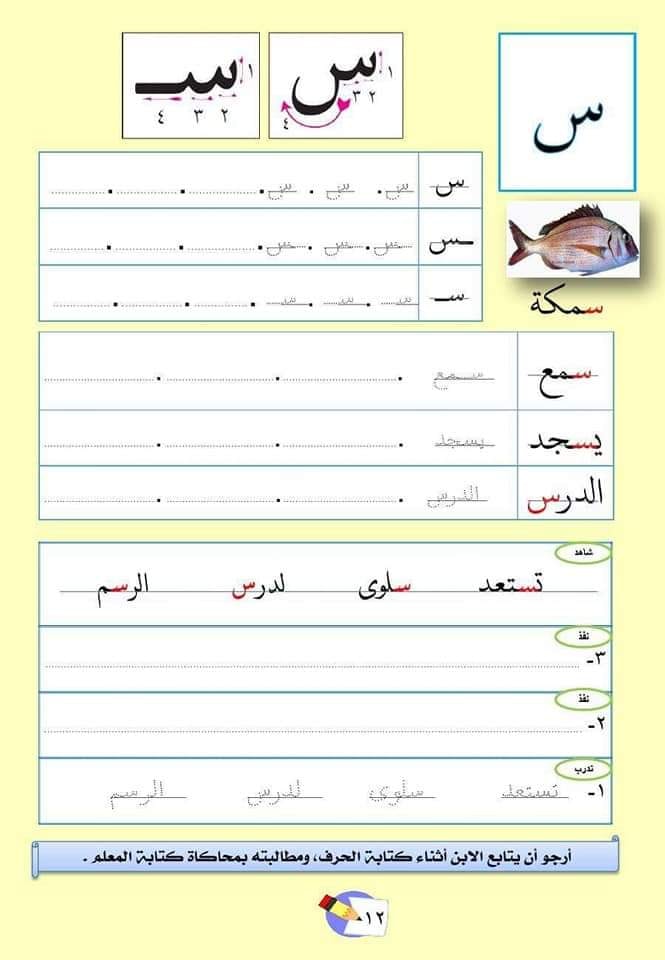 س
س ١ ٢ ٣ ٤
سـ ١ ٢ ٣ ٤
سمكة
س س . س . س . . .
ـس ـس . ـس . ـس . . .
سـ سـ . سـ . سـ . . .
سمع سمع . . .
يسجد يسجد . . .
الدرس الدرس . . .
شاهد
تستعد سلوى لدرس الرسم
نفذ
٣-
نفذ
٢-
تدرب
١- تستعد سلوى لدرس الرسم
أرجو أن يتابع الابن أثناء كتابة الحرف، ومطالبته بمحاكاة كتابة المعلم .
١٢